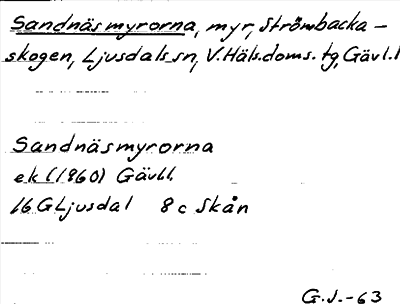 Sandnäsmyrorna, myr, Strömbacka-
skogen, Ljusdals sn, V. Häls. doms. tg, Gävl. l
Sandnäsmyrorna
ek (1960) Gävl.l.
16 G Ljusdal 8 c Skån
G. J. -63